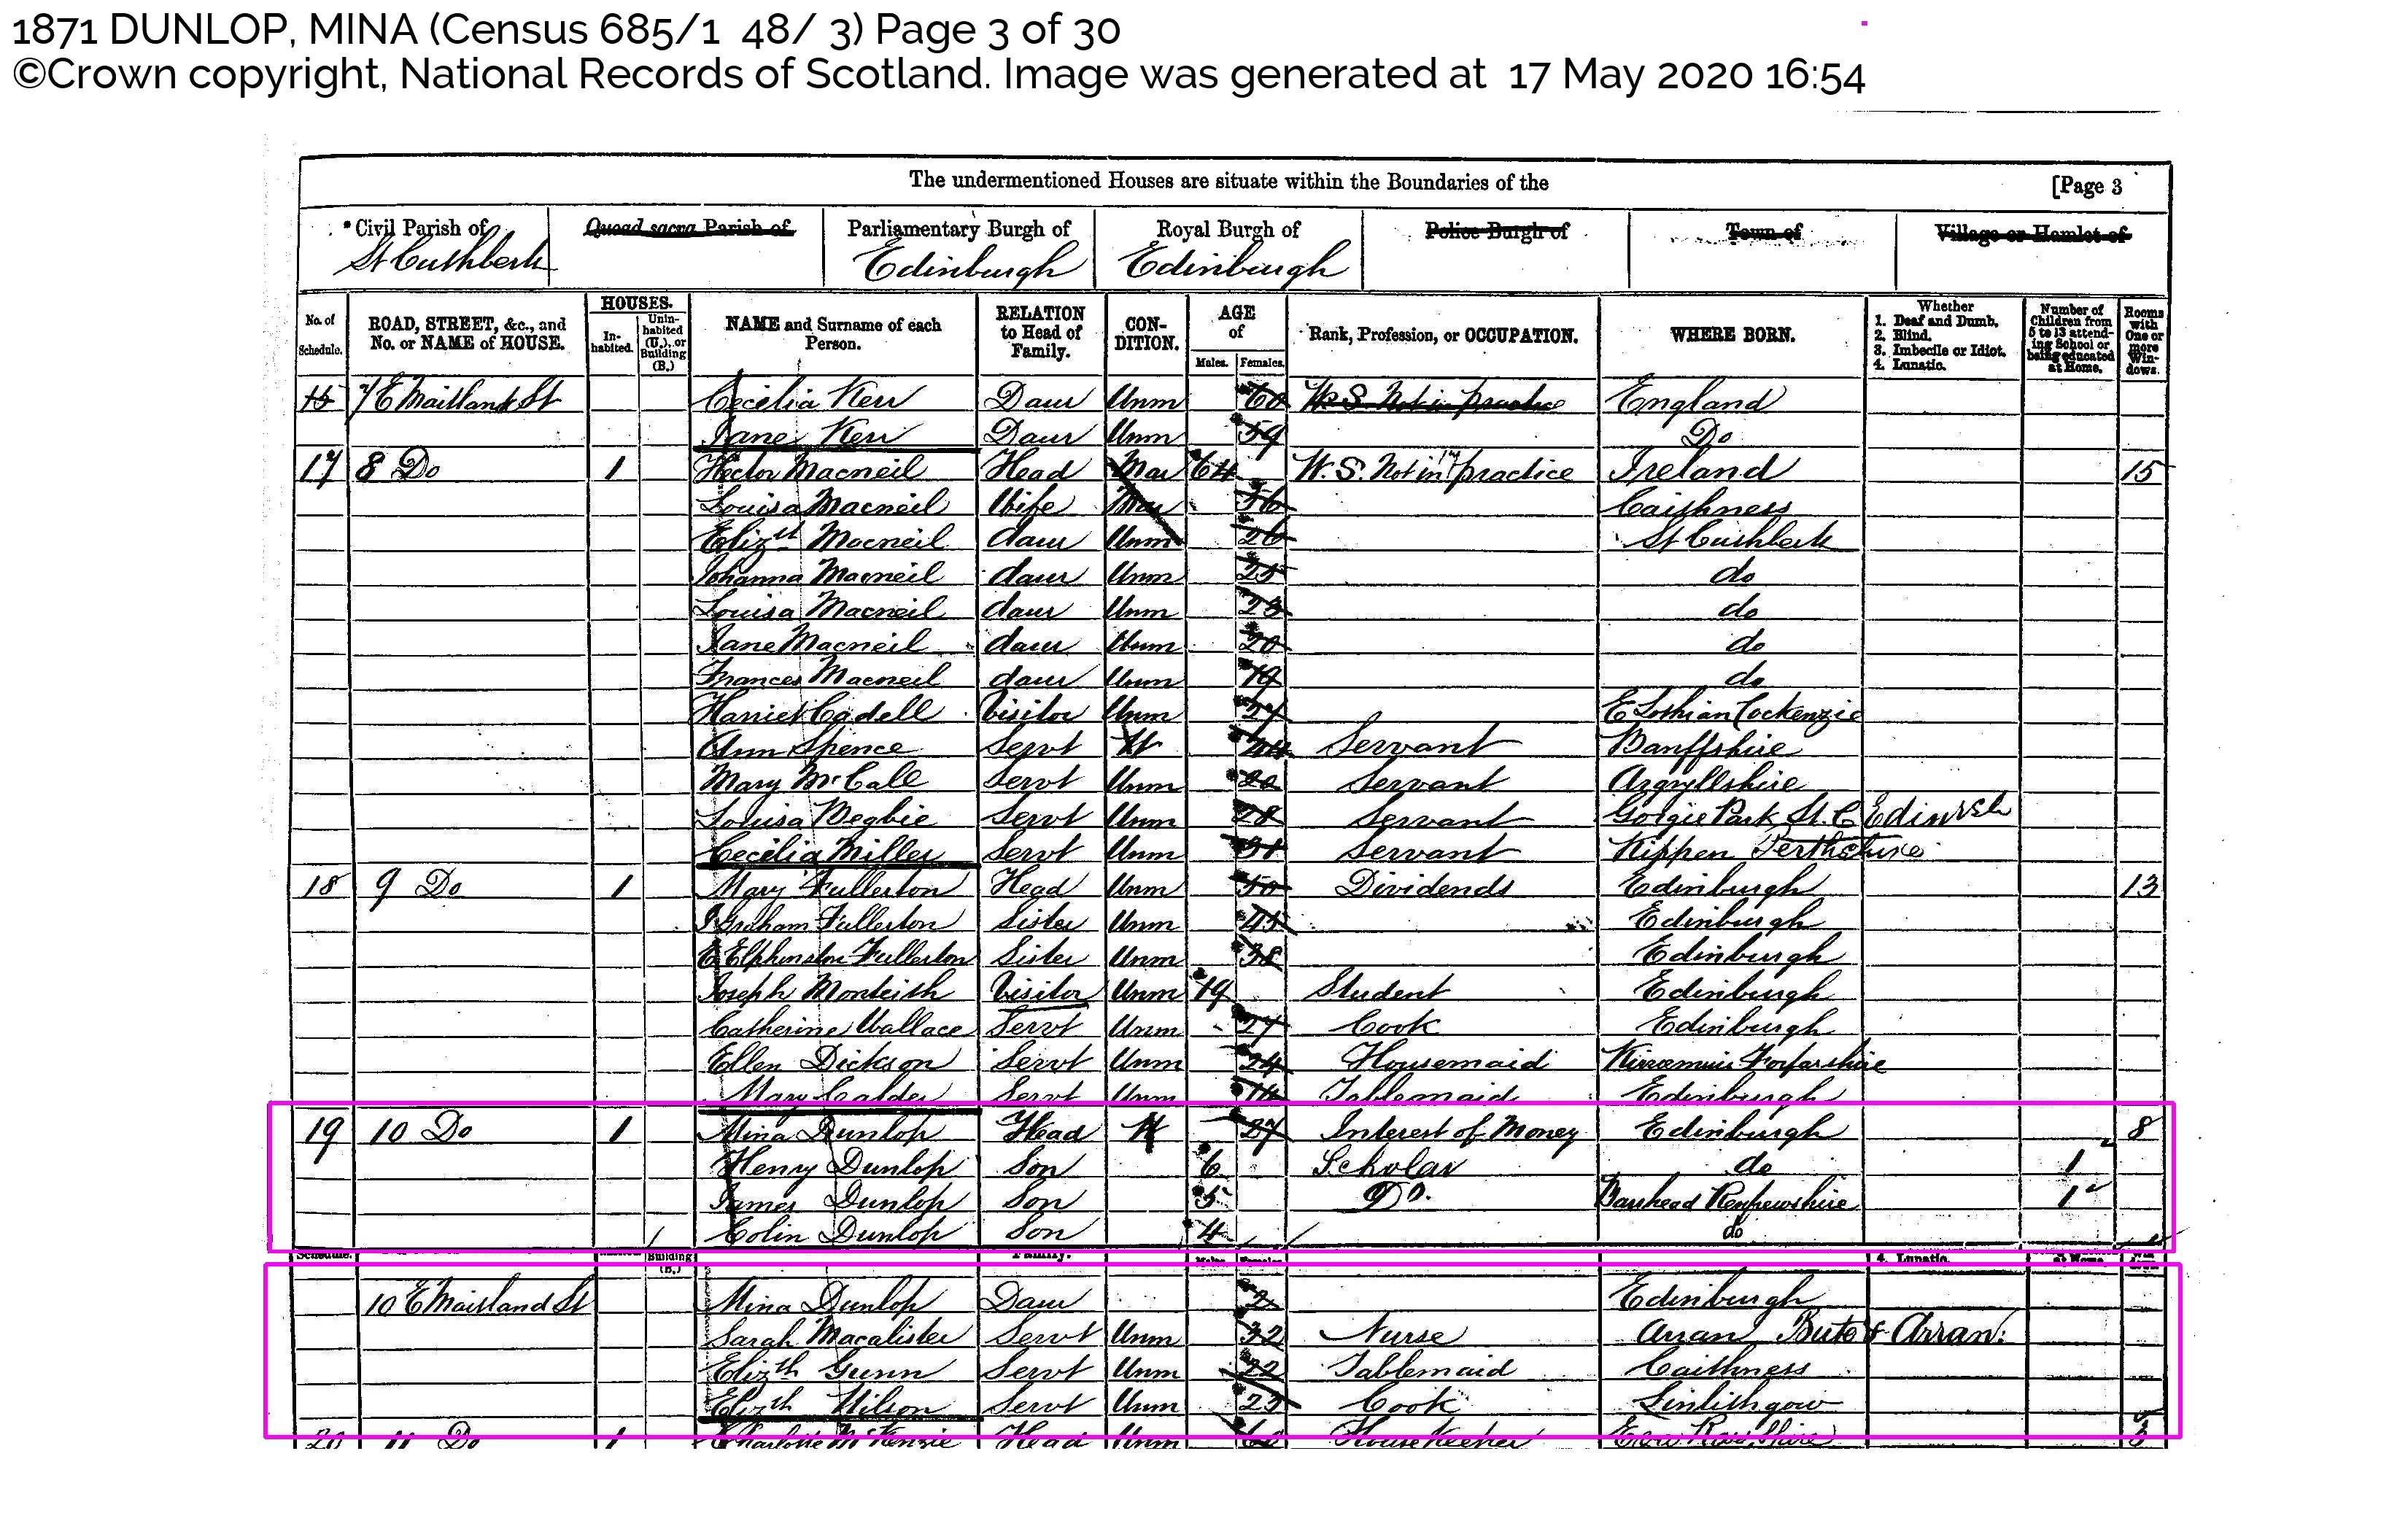 1871 DUNLOP, MINA (Census 685/1 48/ 3) Page 3 of 30
©Crown copyright, National Records of Scotland. Image was generated at 17 May 2020 16:54
The undermentioned Houses are situate within the Boundaries of the [Page 3
Civil Parish of Quoad sacra Parish of Parliamentary Burgh of Royal Burgh of Police Burgh of Town of Village or Hamlet of
St Cuthberts Edinburgh Edinburgh
No. of Schedule. ROAD, STREET, &c., and No. or NAME of HOUSE. HOUSES. Inhabited. Uninhabited (U.), or Building (B.) NAME and Surname of each Person. RELATION to Head of Family. CONDITION. AGE of Males. Females. Rank, Profession, or OCCUPATION. WHERE BORN. Whether 1. Deaf and Dumb. 2. Blind. 3. Imbecile or Idiot. 4. Lunatic. Number of Children from 5 to 13 attending School or being educated at Home. Rooms with One or more Windows.
7 E Maitland St Cecilia Kerr Daur Unm 60 W. S. Not in practice England
Jane Kerr Daur Unm 59 Do
17 8 Do 1 Hector Macneil Head Mar 64 W. S. Not in practice Ireland 15
Louisa Macneil Wife Mar 56 Caithness
Elizth Macneil daur Unm 26 St Cuthberts
Johanna Macneil daur Unm 25 do
Louisa Macneil daur Unm 23 do
Jane Macneil daur Unm 20 do
Frances Macneil daur Unm 19 do
Harriet Cadell Visitor Unm 27 E Lothian Cockenzie
Ann Spence Servt W 44 Servant Banffshire
Mary McCall Servt Unm 22 Servant Argyllshire
Louisa Begbie Servt Unm 28 Servant Gorgie Park St. C Edinrgh
Cecilia Miller Servt Unm 31 Servant Kippen Perthshire
18 9 Do 1 Mary Fullerton Head Unm 50 Dividends Edinburgh 13
J Graham Fullerton Sister Unm 45 Edinburgh
E Elphinston Fullerton Sister Unm 38 Edinburgh
Joseph Monteith Visitor Unm 19 Student Edinburgh
Catherine Wallace Servt Unm 27 Cook Edinburgh
Ellen Dickson Servt Unm 24 Housemaid Kirremuir Forfarshire
Mary Calder Servt Unm Tablemaid Edinburgh
19 10 Do 1 Mina Dunlop Head W 27 Interest of Money Edinburgh 8
Henry Dunlop Son 6 Scholar do 1
James Dunlop Son 5 Do. Barrhead Renfrewshire 1
Colin Dunlop Son 4 do
Schedule. Building (B.) Family. Males. Females. 4. Lunatic. at Home.
10 E Maitland St Mina Dunlop Daur 2 Edinburgh
Sarah Macalister Servt Unm 32 Nurse Arran Bute & Arran.
Elizth Gunn Servt Unm 22 Tablemaid Caithness
Elizth Wilson Servt Unm 23 Cook Linlithgow
20 11 Do 1 Charlotte McKenzie Head Unm 60 House Keeper